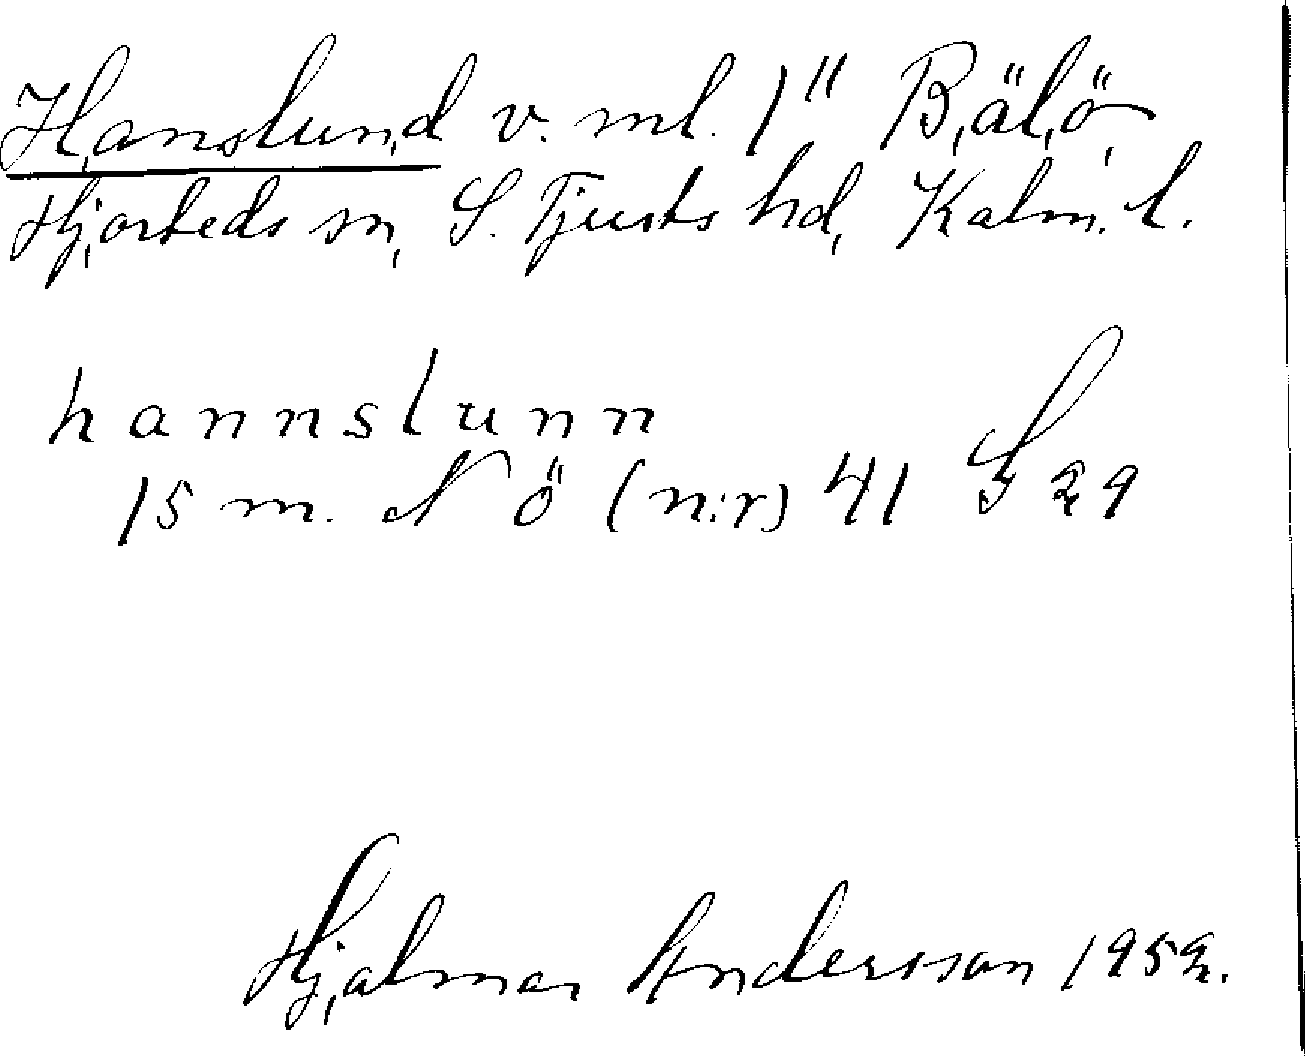 Hanslund v. ml. 1" Bälö,
Hjorteds sn, S. Tjusts hd, Kalm. l.
hannslunn
15 m. N ö (n:r) 41 S 29
Hjalmar Andersson 1952.